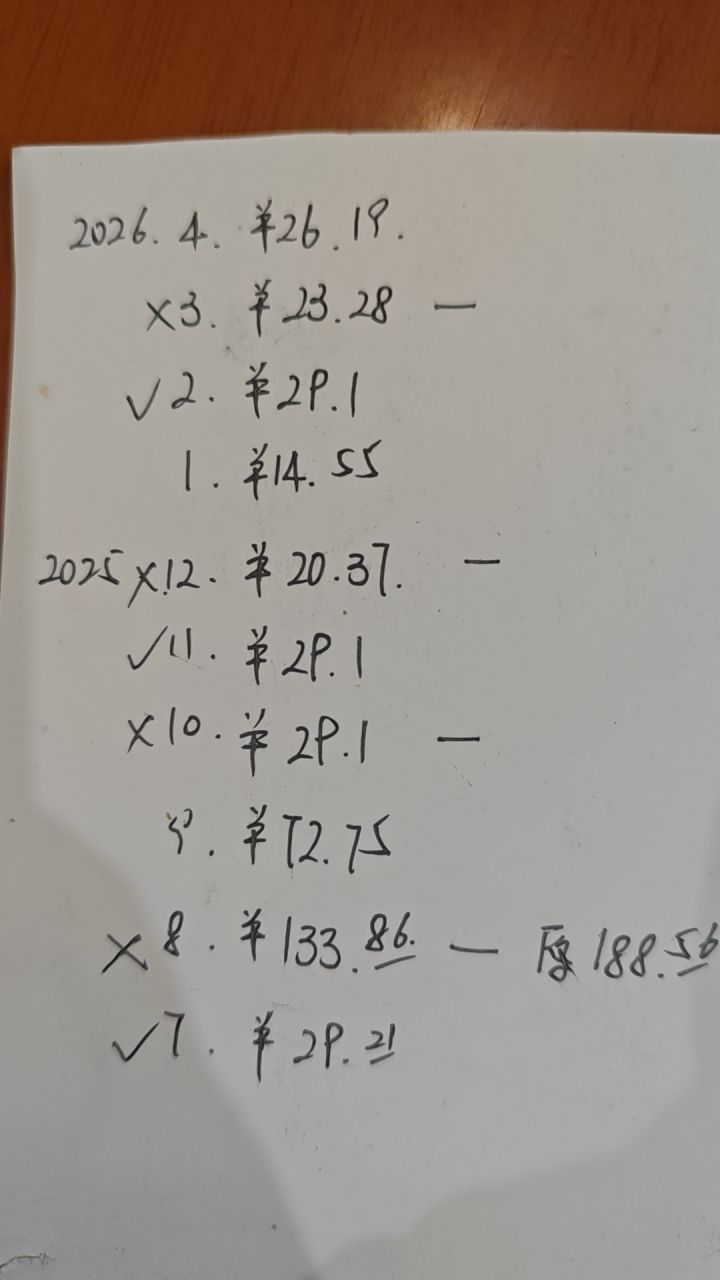 2026. 4. ¥26.19.
×3. ¥23.28 —
✓2. ¥29.1
1. ¥14.55
2025 ×12. ¥20.37. —
✓11. ¥29.1
×10. ¥29.1 —
9. ¥72.75
×8. ¥133.86. — 原188.56
✓7. ¥29.21